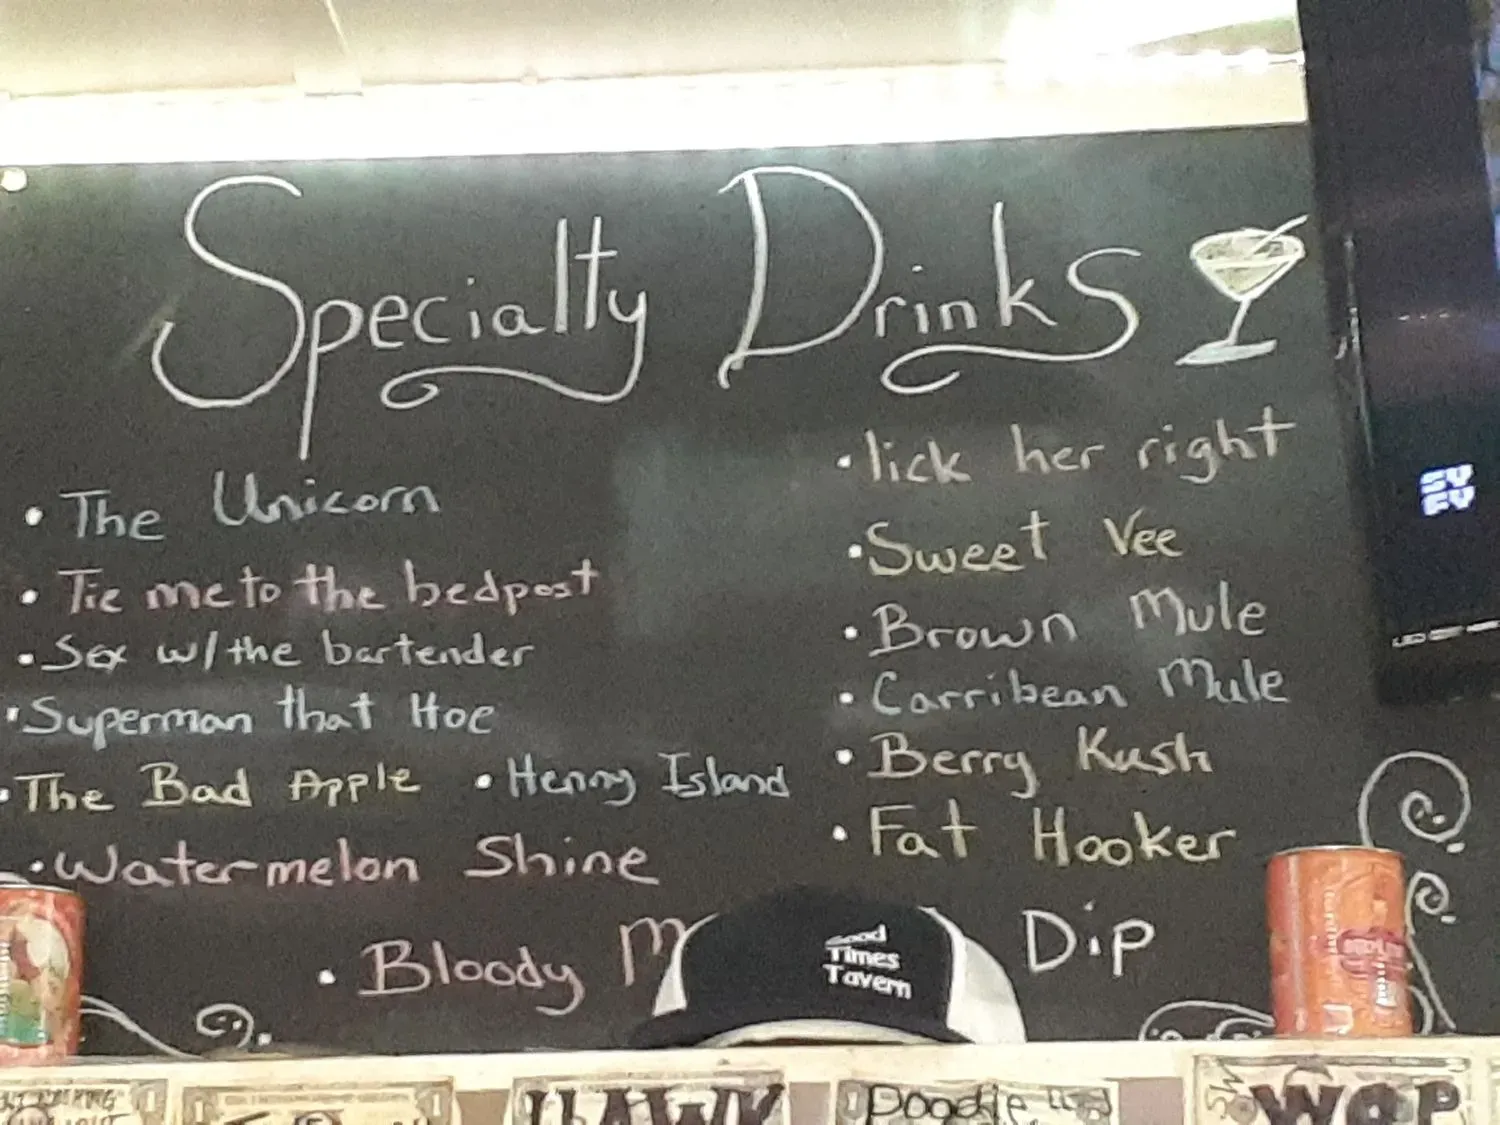 Specialty Drinks
• The Unicorn
• Tie me to the bedpost
• Sex w/ the bartender
• Superman that Hoe
• The Bad Apple • Henny Island
• Watermelon Shine
• lick her right
• Sweet Vee
• Brown Mule
• Carribean Mule
• Berry Kush
• Fat Hooker
• Bloody M
Dip
Good
Times
Tavern
SY
FY
HAWK
Poodie
WOP